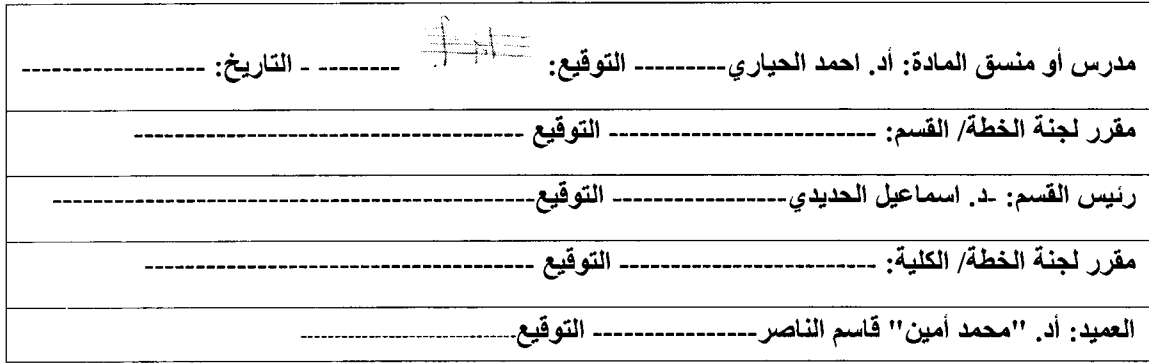 مدرس أو منسق المادة: أد. احمد الحياري--------- التوقيع: -------- - التاريخ: ------------------
مقرر لجنة الخطة/ القسم: -------------------------- التوقيع --------------------------------------
رئيس القسم: -د. اسماعيل الحديدي----------------- التوقيع-----------------------------------------------
مقرر لجنة الخطة/ الكلية: ------------------------- التوقيع --------------------------------------
العميد: أد. "محمد أمين" قاسم الناصر---------------- التوقيع----------------------